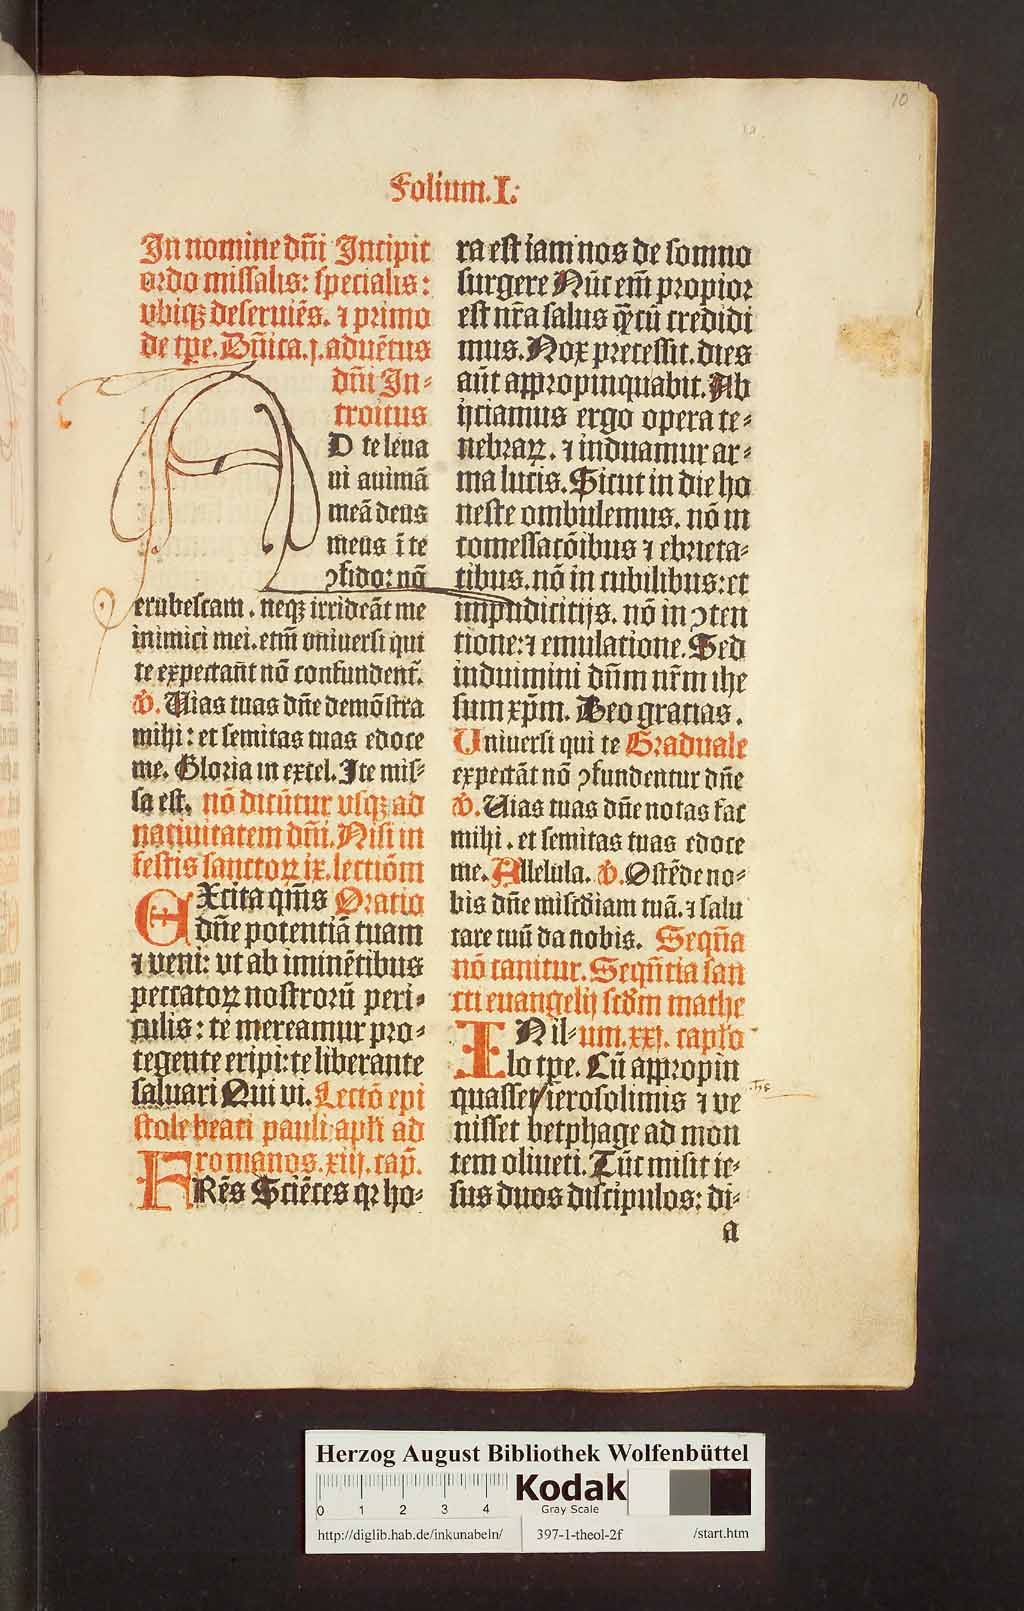 10
Folium.I:
In nomine dñi Incipit
ordo missalis: specialis:
vbiqꝫ deseruiẽs. ⁊ primo
de tꝑe. Dñica.j. aduẽtus
dñi In-
troitus
AD te leua
ui animã
meã deus
meus ĩ te
ↄfido: nõ
erubescam. neqꝫ irrideãt me
inimici mei. etm̃ vniuersi qui
te expectañt nõ confundent̃.
℣. Uias tuas dñe demõstra
mihi: et semitas tuas edoce
me. Gloria in excel. Ite mis-
sa est. nõ dicũtur vsqꝫ ad
natiuitatem dñi. Nisi in
festis sanctoꝝ ix. lectiõm
EXcita qm̃s Oratio
dñe potentiã tuam
⁊ veni: vt ab iminẽtibus
peccatoꝝ nostrorũ peri-
culis: te mereamur pro-
tegente eripi: te liberante
saluari Qui vi. Lectõ epi
stole beati pauli apłi ad
romanos. xiij. cap̃.
FRẽs Sciẽtes qꝛ ho-
ra est iam nos de somno
surgere Nũc em̃ propior
est nr̃a salus q̃ cũ credidi
mus. Nox precessit. dies
aũt appropinquabit. Ab
ijciamus ergo opera te-
nebraꝝ. ⁊ induamur ar-
ma lucis. Sicut in die ho
neste ombulemus. nõ in
comessatõibus ⁊ ebrieta-
tibus. nõ in cubilibus: et
impudicitijs. nõ in ↄten
tione: ⁊ emulatione. Sed
induimini dñm nr̃m ihe
sum xp̃m. Deo gratias.
Uniuersi qui te Graduale
expectãt nõ ↄfundentur dñe
℣. Uias tuas dñe notas fac
mihi. et semitas tuas edoce
me. Allelula. ℣. Ostẽde no-
bis dñe misc̃diam tuã. ⁊ salu
tare tuũ da nobis. Seqña
nõ canitur. Seqñtia san
cti euangelij scd̃m mathe
IN il- um. xxj. capło
lo tꝑe. Cũ appropin
quasset ierosolimis ⁊ ve
nisset betphage ad mon
tem oliueti. Tũc misit ie-
sus duos discipulos: di-
a
Herzog August Bibliothek Wolfenbüttel
0 1 2 3 4
Kodak
Gray Scale
http://diglib.hab.de/inkunabeln/ 397-1-theol-2f /start.htm